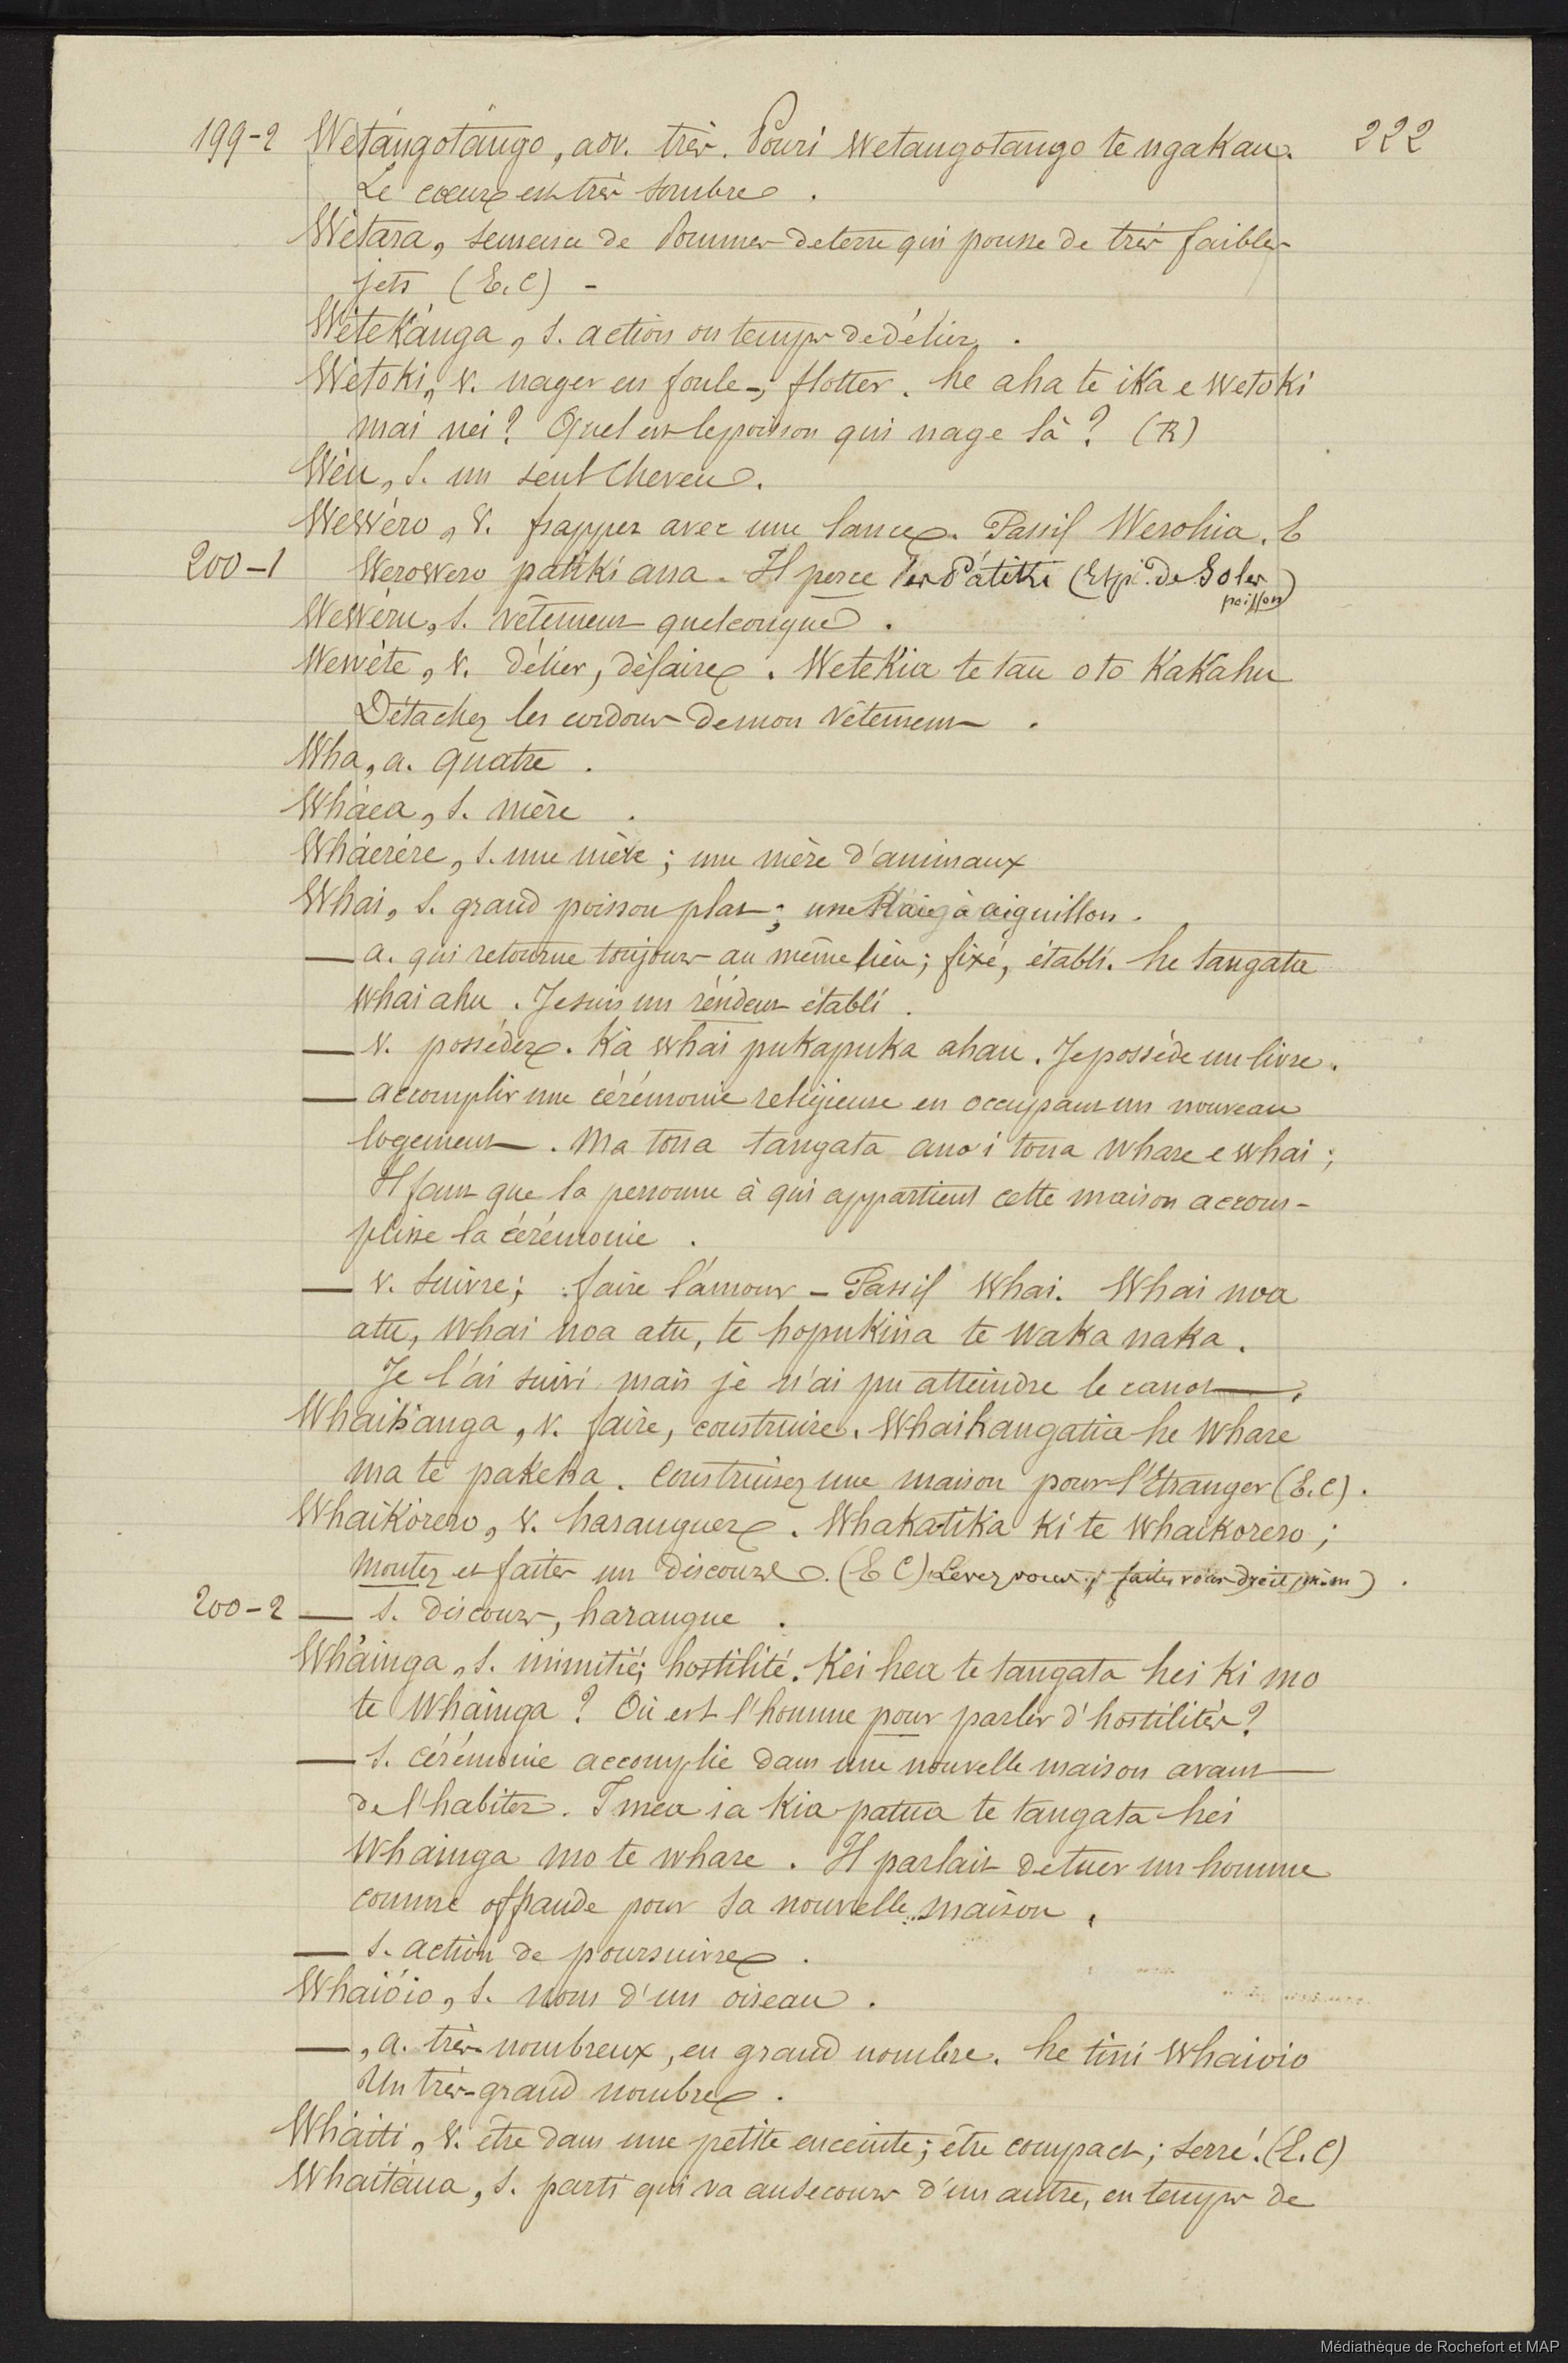 199-2 Wetángotángo, adv. très. Pouri wetangotango te ngakau. 222
Le cœur est très sombre.
Wétara, semence de Pommes de terre qui pousse de très faibles
jets (E.C) -
Wétekánga, s. action ou temps de délier.
Wétoki, v. nager en foule; flotter. he aha te ika e wetoki
mai nei? Quel est le poisson qui nage là? (R)
Wéu, s. un seul cheveu.
Wewéro, v. frapper avec une lance. Passif Werohia. E
200-1 Werowero patiki ana. Il perce les Pátiki (Esp. de Soles
poisson)
Wewéru, s. vêtement quelconque.
Wewéte, v. délier, défaire. Wetekia te tau o to Kakahu
Détachez les cordons de mon vêtement.
Wha, a. quatre.
Wháea, s. mère.
Wháerére, s. une mère; une mère d'animaux
Whai, s. grand poisson plat; une Raie à aiguillon.
— a. qui retourne toujours au même lieu; fixé, établi. he tangata
whai ahu. Je suis un résident établi.
— v. posséder. Ka whai pukapuka ahau. Je possède un livre.
— accomplir une cérémonie religieuse en occupant un nouveau
logement. Ma tona tangata ano i tona whare e whai;
Il faut que la personne à qui appartient cette maison accom-
plisse la cérémonie.
— v. suivre; faire l'amour - Passif Whai. Whai noa
atu, whai noa atu, te hopukina te waka naka.
Je l'ai suivi mais je n'ai pu atteindre le canot.
Whaihanga, v. faire, construire. Whaihangatia he whare
ma te pakeha. Construisez une maison pour l'Etranger (E.C).
Whaikórero, v. haranguer. Whakatika ki te whaikorero;
Montez et faites un discours. (E C) Levez vous; faites vous droit
200-2 — s. discours, harangue.
Wháinga, s. inimitié; hostilité. Kei hea te tangata hei ki mo
te Whainga? Où est l'homme pour parler d'hostilités?
— s. cérémonie accomplie dans une nouvelle maison avant
de l'habiter. I mea ia kia patua te tangata hei
Whainga mo te whare. Il parlait de tuer un homme
comme offrande pour sa nouvelle maison.
— s. action de poursuivre.
Whaióio, s. nom d'un oiseau.
—, a. très nombreux, en grand nombre. he tini Whaioio
Un très-grand nombre.
Wháiti, v. être dans une petite enceinte; être compact; serré. (E.C)
Whaitáua, s. parti qui va au secours d'un autre, en temps de
Médiathèque de Rochefort et MAP